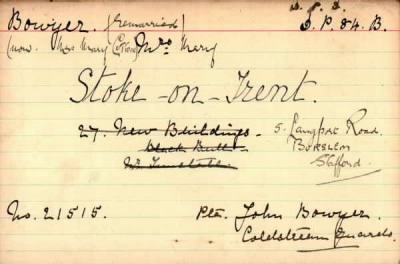 Bowyer. (Remarried) D. P. 84. B.
(now Mrs Mary Mrs Mary
Stoke-on-Trent.
27. New Buildings. 5. Langport Road.
Black Bull. Burslem
Nr. Tunstall. Stafford.
No. 21515. Pte. John Bowyer.
Coldstream Guards.